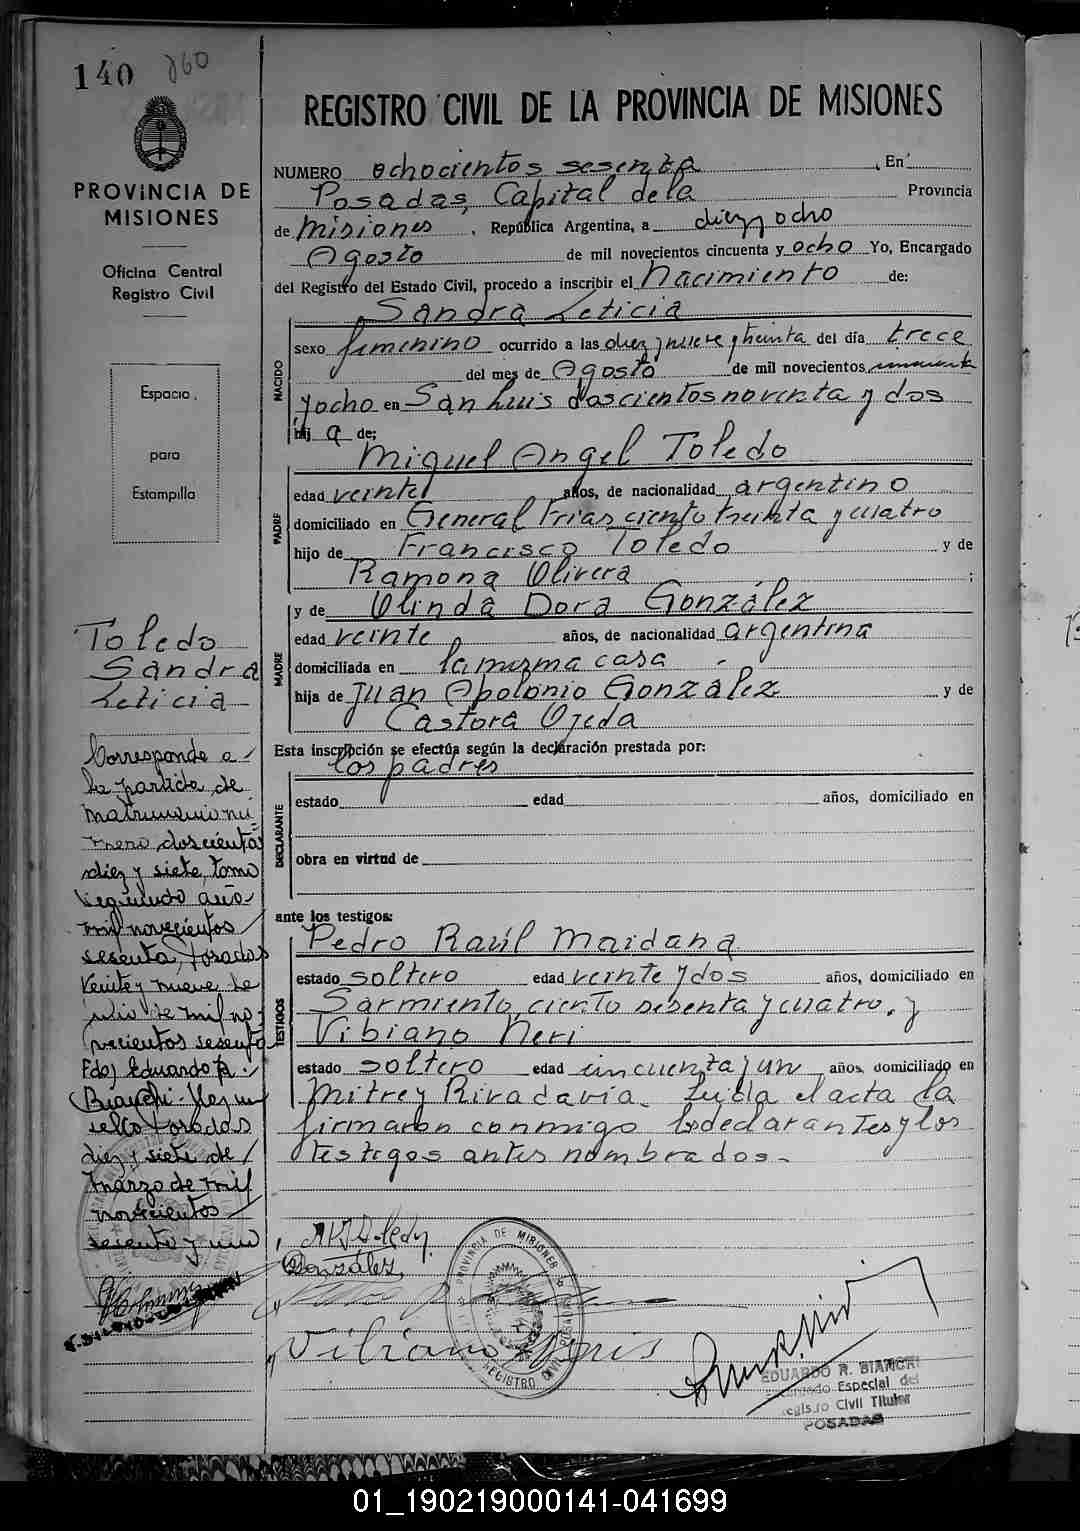 140 860
PROVINCIA DE
MISIONES
Oficina Central
Registro Civil
Espacio
para
Estampilla
Toledo
Sandra
Leticia
Corresponde a
la partida de
matrimonio nú-
mero doscientos
diez y siete, tomo
segundo año
mil novecientos
sesenta, Posadas
veinte y nueve de
julio de mil no-
vecientos sesenta
Fdo, Eduardo R.
Bianchi. Hay un
sello Posadas
diez y siete de
marzo de mil
novecientos
sesenta y uno
REGISTRO CIVIL DE LA PROVINCIA DE MISIONES
NUMERO ochocientos sesenta, En
Posadas, Capital de la Provincia
de Misiones, República Argentina, a diez y ocho
Agosto de mil novecientos cincuenta y ocho Yo, Encargado
del Registro del Estado Civil, procedo a inscribir el Nacimiento de:
Sandra Leticia
NACIDO
sexo femenino ocurrido a las diez y nueve y treinta del día trece
del mes de Agosto de mil novecientos cincuenta
y ocho en San Luis doscientos noventa y dos
hij a de;
Miguel Angel Toledo
PADRE
edad veinte años, de nacionalidad argentino
domiciliado en General Frias ciento treinta y cuatro
hijo de Francisco Toledo y de
Ramona Olivera ;
y de Olinda Dora González
MADRE
edad veinte años, de nacionalidad argentina
domiciliada en la misma casa
hija de Juan Apolonio González y de
Castora Ojeda
Esta inscripción se efectúa según la declaración prestada por:
los padres
DECLARANTE
estado edad años, domiciliado en
obra en virtud de
ante los testigos:
Pedro Raúl Maidana
TESTIGOS
estado soltero edad veinte y dos años, domiciliado en
Sarmiento, ciento sesenta y cuatro, y
Vibiano Neri
estado soltero edad cincuenta y un años, domiciliado en
Mitre y Rivadavia. Leida el acta la
firmaron conmigo los declarantes y los
testigos antes nombrados.
González
PROVINCIA DE MISIONES
REGISTRO CIVIL POSADAS
EDUARDO R. BIANCHI
Especial del
Registro Civil Titular
POSADAS
01_190219000141-041699